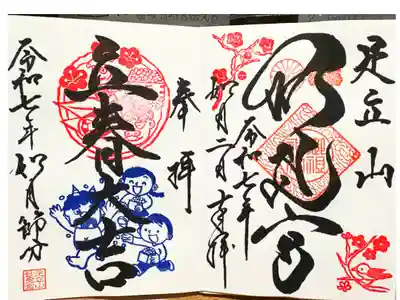 足立山
妙見宮
令和七年
如月二日奉拝
奉拝
立春大吉
令和七年如月節分